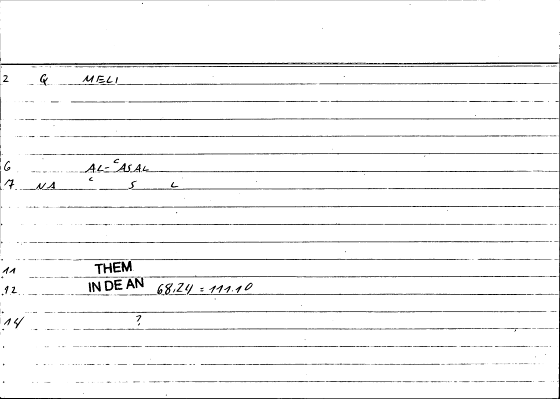 2 Q MELI
6 AL-ʿASAL
17 NA ʿ S L
11 THEM
12 IN DE AN 68.24 = 111.10
14 ?